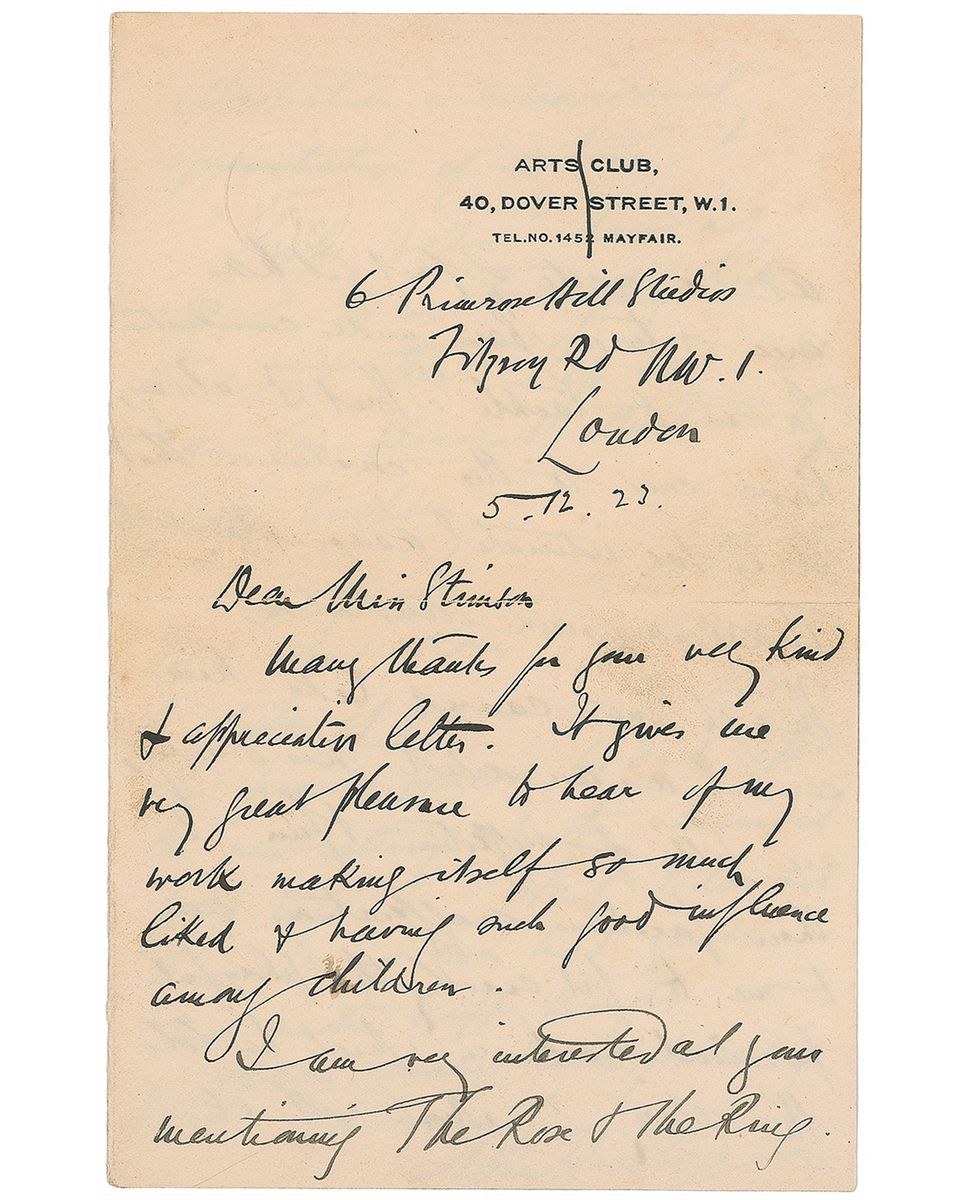 ARTS CLUB,
40, DOVER STREET, W.1.
TEL. NO. 1452 MAYFAIR.
6 Primrose Hill Studios
Fitzroy Rd NW. 1.
London
5.12.23.
Dear Miss Stimson
Many thanks for your very kind
& appreciative letter. It gives me
very great pleasure to hear of my
work making itself so much
liked & having such good influence
among children.
I am very interested at your
mentioning The Rose & the Ring.